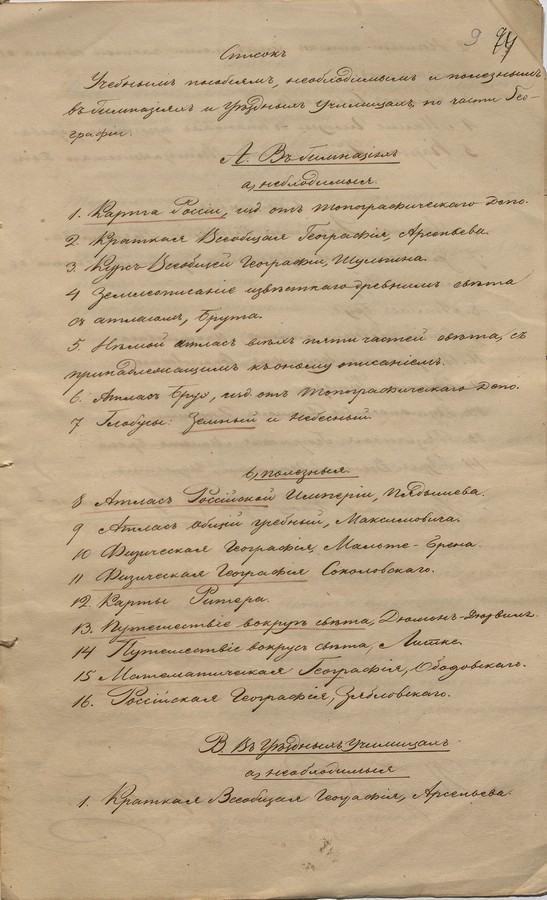 9 74
Списокъ
Учебнымъ пособіямъ, необходимымъ и полезнымъ
въ Гимназіяхъ и Уѣздныхъ Училищахъ, по части Гео-
графіи.
А. Въ Гимназіяхъ
а, необходимыя.
1. Карта Россіи, изд. отъ Топографическаго Депо.
2. Краткая Всеобщая Географія, Арсеньева.
3. Курсъ Всеобщей Географіи, Шульгина.
4 Землеописаніе извѣстнаго древнимъ свѣта
съ атласомъ, Брута.
5. Нѣмой атласъ всѣхъ пяти частей свѣта, съ
принадлежащимъ къ оному описаніемъ.
6. Атласъ Бруэ, изд. отъ Топографическаго Депо.
7 Глобусы: Земный и Небесный.
б, полезныя.
8 Атласъ Россійской Имперіи, Пядышева.
9 Атласъ общій учебный, Максимовича.
10 Физическая Географія, Мальте-Брена.
11 Физическая Географія Соколовскаго.
12. Карты Ритера.
13. Путешествіе вокругъ свѣта, Дюмонъ-Дюрвиля.
14 Путешествіе вокругъ свѣта, Литке.
15 Математическая Географія, Ободовскаго.
16. Россійская Географія, Зябловскаго.
В. Въ Уѣздныхъ Училищахъ
а, необходимыя
1. Краткая Всеобщая Географія, Арсеньева.